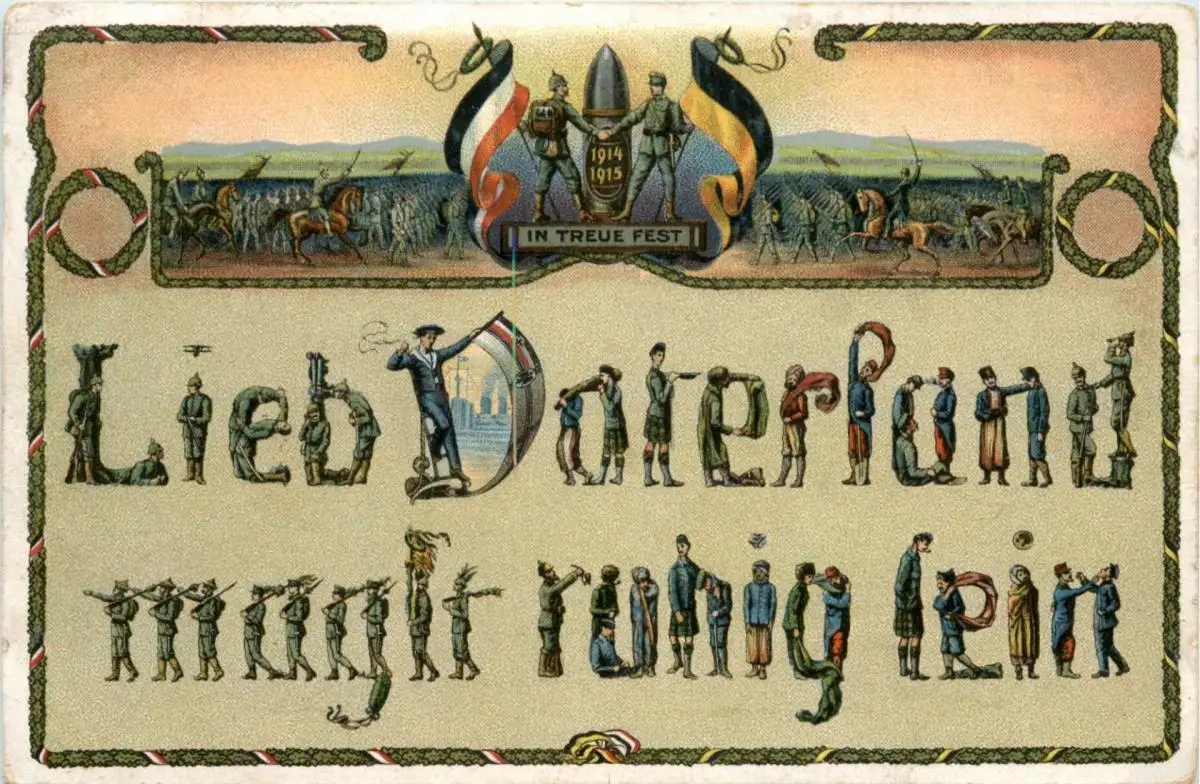 1914
1915
IN TREUE FEST
Lieb Vaterland
magst ruhig sein